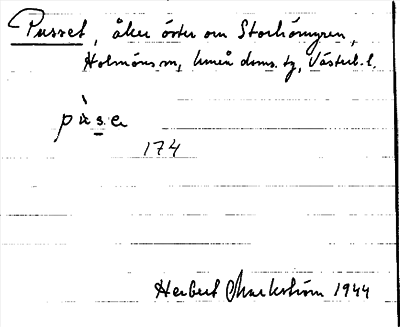 Pusset, åker öster om Storhömyren,
Holmöns sn, Umeå doms. tg, Västerb. l.
pùs̲e
174
Herbert Markström 1944